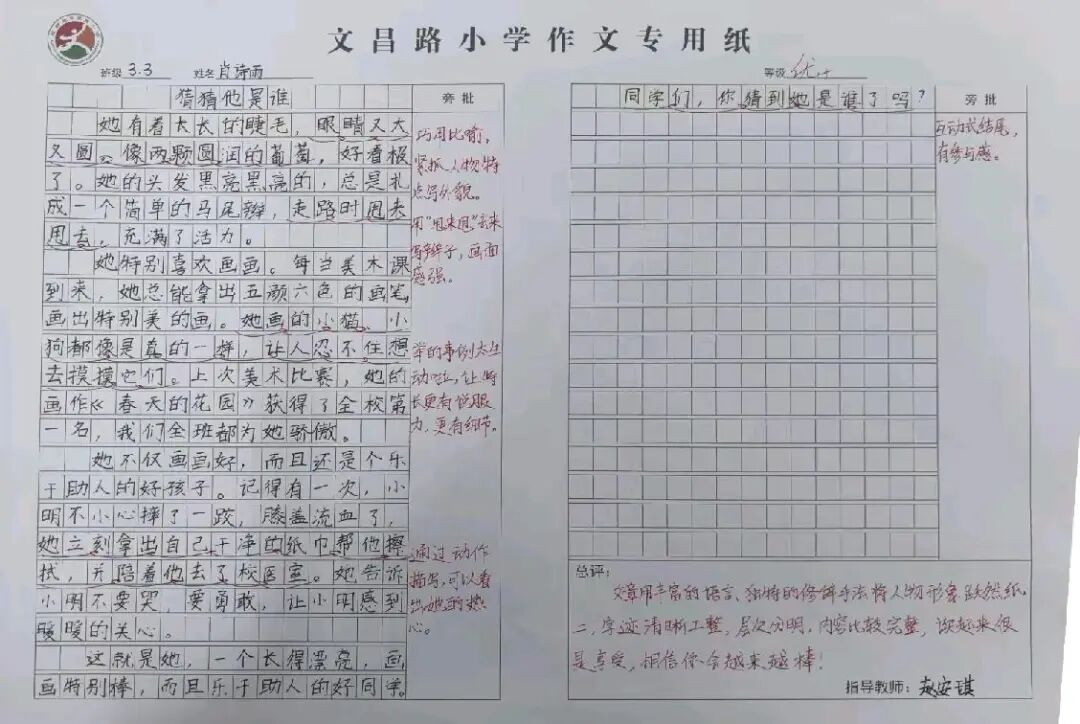 文昌路小学作文专用纸
班级 3.3 姓名 肖诗雨
猜猜他是谁
她有着长长的睫毛，眼睛又大
又圆，像两颗圆润的葡萄，好看极
了。她的头发黑亮黑亮的，总是扎
成一个简单的马尾辫，走路时甩来
甩去，充满了活力。
她特别喜欢画画。每当美术课
到来，她总能拿出五颜六色的画笔，
画出特别美的画。她画的小猫、小
狗都像是真的一样，让人忍不住想
去摸摸它们。上次美术比赛，她的
画作《春天的花园》获得了全校第
一名，我们全班都为她骄傲。
她不仅画画好，而且还是个乐
于助人的好孩子。记得有一次，小
明不小心摔了一跤，膝盖流血了，
她立刻拿出自己干净的纸巾帮他擦
拭，并陪着他去了校医室。她告诉
小明不要哭，要勇敢，让小明感到
暖暖的关心。
这就是她，一个长得漂亮，画
画特别棒，而且乐于助人的好同学。
旁批
巧用比喻，
紧抓人物特
点写外貌。
用“甩来甩去”来
写辫子，画面
感强。
举的事例太生
动啦，让特
长更有说服
力，更有细节。
通过动作
描写，可以看
出她的热
心。
等级 优+
同学们，你猜到她是谁了吗？
旁批
互动式结尾，
有参与感。
总评：
文章用丰富的语言、独特的修辞手法将人物形象跃然纸。
二，字迹清晰工整，层次分明，内容比较完整，读起来很
是享受，相信你会越来越棒！
指导教师：赵安琪